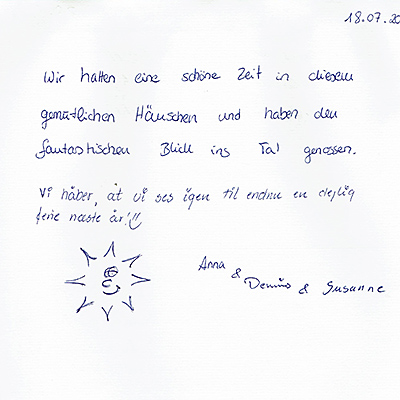 18.07.20
Wir hatten eine schöne Zeit in diesem
gemütlichen Häuschen und haben den
fantastischen Blick ins Tal genossen.
Vi håber, at vi ses igen til endnu en dejlig
ferie næste år!
Anna
& Dennis & Susanne